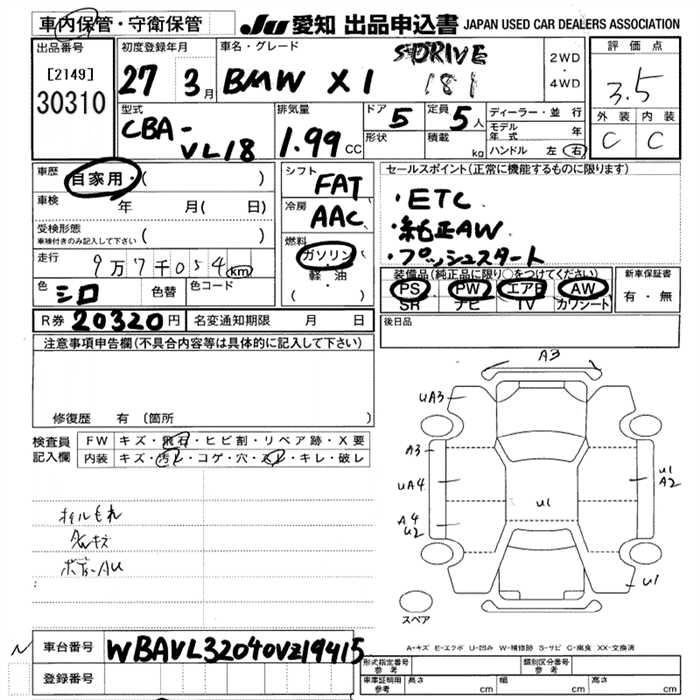 車内保管・守衛保管
JU 愛知 出品申込書 JAPAN USED CAR DEALERS ASSOCIATION
出品番号
[2149]
30310
初度登録年月
27 3月
車名・グレード
BMW X1 SDRIVE
18i
2WD
・
4WD
評価点
3.5
外装 内装
C C
型式
CBA-
VL18
排気量
1.99 CC
ドア 5
形状
定員 5人
積載 kg
ディーラー・並行
モデル年式 年
ハンドル 左 右
車歴
自家用・( )
車検
年 月( 日)
受検形態
車検付きのみ記入して下さい ( )
走行
9万7千054km
色 シロ 色替 色コード
シフト
FAT
冷房
AAC
燃料
ガソリン
軽・油
( )
セールスポイント(正常に機能するものに限ります)
・ETC
・純正AW
・プッシュスタート
装備品(純正品に限り○をつけてください)
PS PW エアB AW
SR ナビ TV カワシート
新車保証書
有・無
R券 20320円 名変通知期限 月 日
後日品
注意事項申告欄(不具合内容等は具体的に記入して下さい)
修復歴 有 (箇所
検査員
記入欄
FW キズ・飛石・ヒビ割・リペア跡・X要
内装 キズ・汚レ・コゲ・穴・スレ・キレ・破レ
オイルもれ
AWキズ
ボデーAU
A3
UA3
A3
UA4
A4
U2
U1
U1
A2
U1
スペア
A-キズ E-エクボ U-凹み W-補修跡 S-サビ C-腐食 XX-交換済
N
車台番号 WBAVL32040VZ19415
登録番号
形式指定番号
参考
類別区分番号
参考
車庫証明用
参考
長さ cm
幅 cm
高さ cm